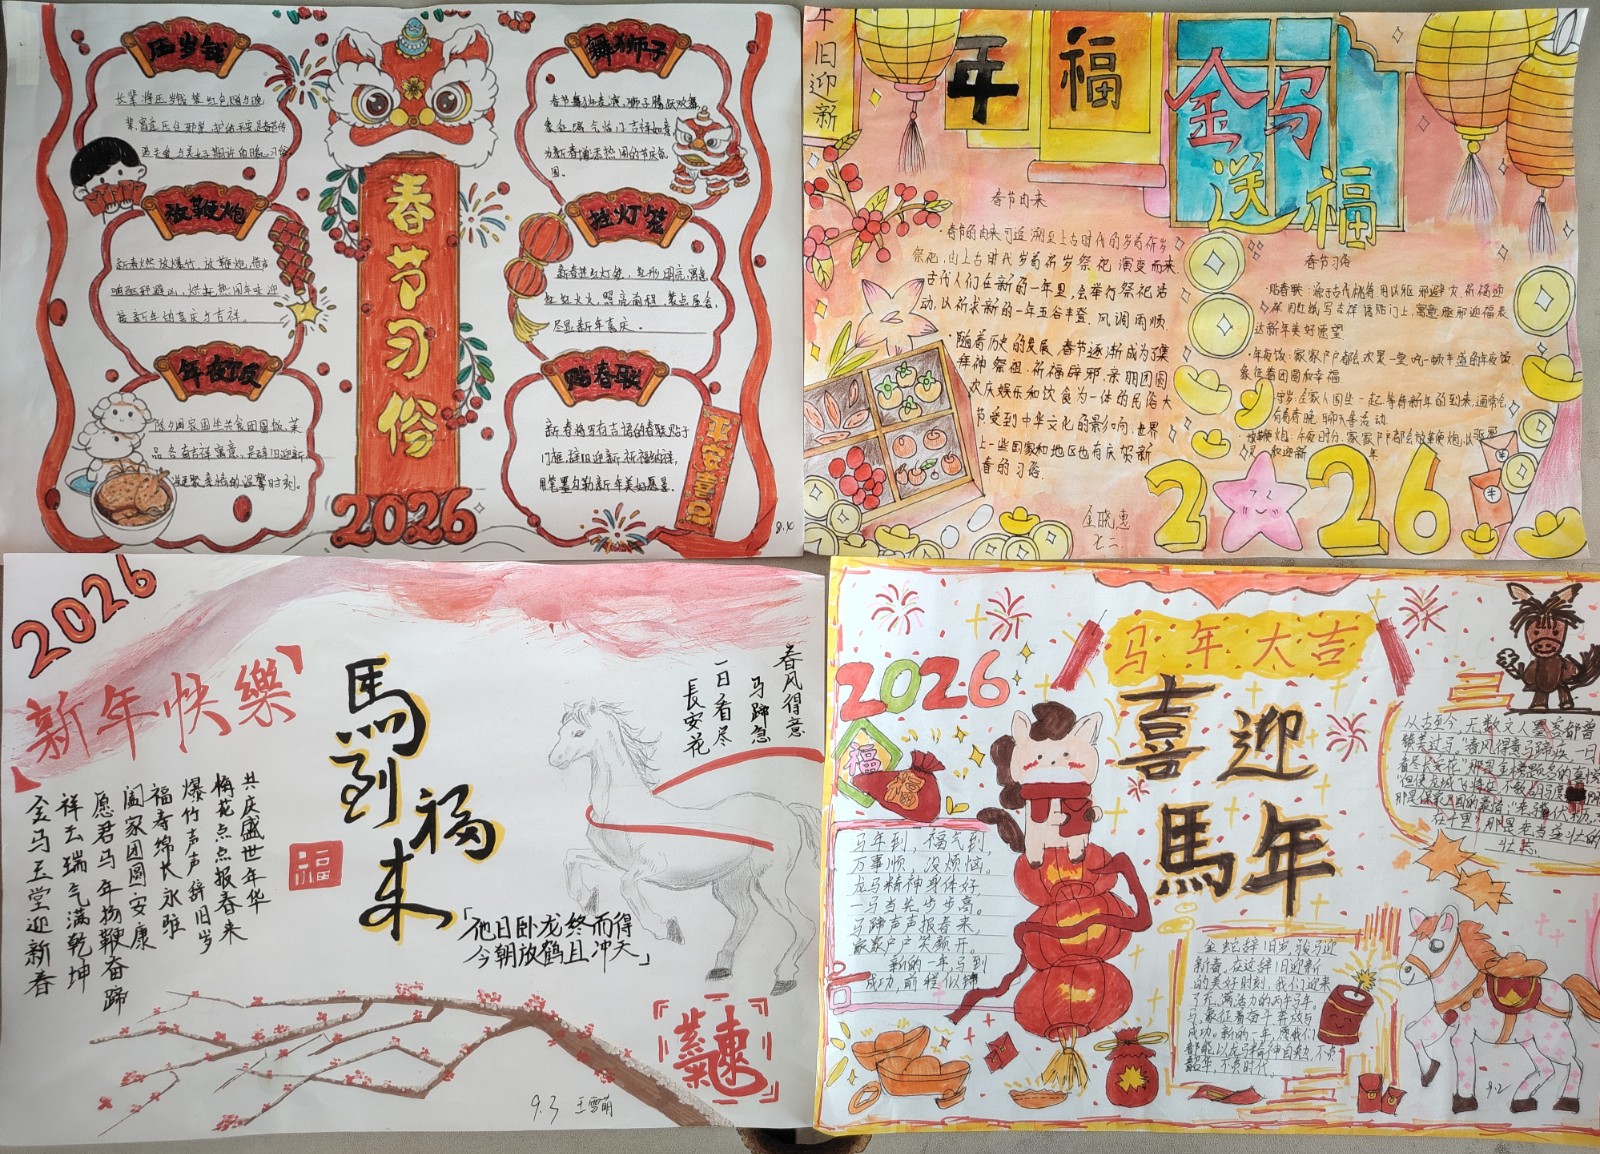 压岁钱
长辈将压岁钱装红包赠与晚
辈,寓意压住邪祟,护佑平安是春节传
放鞭炮
新春燃放爆竹,放鞭炮,
响驱邪避凶,烘托热闹年味迎
接新年的喜庆与吉祥。
年夜饭
除夕阖家围坐共食团圆饭,菜
品含吉祥寓意,是辞旧迎新
凝聚亲情的温馨时刻。
春节习俗
2026
舞狮子
春节舞狮表演,狮子腾跃欢舞,
为新春增添热闹的节庆氛
围。
挂灯笼
新春挂红灯笼,
红红火火,照亮前程,
尽显新年喜庆。
贴春联
新春将写有吉语的春联贴于
门框,辞旧迎新祈福纳祥,
用笔墨勾勒新年美好愿景。
平安喜
8.4
年旧迎新
年
福
金马
送福
春节由来
·春节的由来可追溯至上古时代的岁首祈岁
祭祀,由上古时代岁首祈岁祭祀演变而来.
古代人们在新的一年里,会举行祭祀活
动,以祈求新的一年五谷丰登、风调雨顺.
·随着历史的发展,春节逐渐成为了集
拜神祭祖、祈福辟邪、亲朋团圆
欢庆娱乐和饮食为一体的民俗大
节受到中华文化的影响,世界
上一些国家和地区也有庆贺新
春的习俗.
春节习俗
·贴春联:源于古代桃符用以驱邪避灾,祈福迎
祥用红纸写吉祥语贴门上,寓意驱邪迎福表
达新年美好愿望
·年夜饭:家家户户都会欢聚一堂吃一顿丰盛的年夜饭,
象征着团圆和幸福
守岁:全家人围坐一起,等待新年的到来,通常会
有看春晚,聊天等活动
放鞭炮:午夜时分,家家户户都会放鞭炮,以驱恶
灵,欢迎新年.
2026
金晓惠
七二
2026
新年快樂
馬到福来
春风得意
马蹄急
一日看尽
長安花
共庆盛世年华
梅花点点报春来
爆竹声声辞旧岁
福寿绵长永驻
阖家团圆安康
愿君马年扬鞭奋蹄
祥云瑞气满乾坤
金马玉堂迎新春
福
「他日卧龙终而得
今朝放鹤且冲天」
紫氣東
9.3 王雪萌
马年大吉
2026
喜迎
馬年
福
福
马年到,福气到,
万事顺,没烦恼。
龙马精神身体好,
一马当先步步高。
马蹄声声报春来,
家家户户笑颜开。
新的一年马到
成功,前程似锦
从古至今,无数文人墨客都曾
赞美过马"春风得意马蹄疾,一日
看尽长安花"那是金榜题名的喜悦
"但使龙城飞将在,不教胡马度阴
那是保家卫国的豪情"老骥伏枥,志
在千里,那是老当益壮的
壮志
金蛇辞旧岁,骏马迎
新春。在这辞旧迎新
的美好时刻,我们迎来
了充满活力的丙午马年。
马,象征着奋斗奔放与
成功。新的一年愿我们
都能以龙马精神,
韶华,不负时代。
9.2